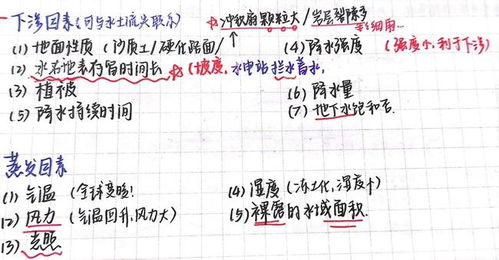 下渗因素(可与水土流失联系)
冲积扇颗粒大/岩层裂隙多
(1) 地面性质 (沙质土/硬化路面/
(4) 降水强度 (强度小,利于下渗)
(2) 水在地表存留时间长 (坡度,水电站拦水蓄水,
(3) 植被
(6) 降水量
(5) 降水持续时间
(7) 地下水饱和否.
蒸发因素
(1) 气温 (全球变暖!
(4) 湿度 (冻土化,湿度↑)
(2) 风力 (气温回升,风力大)
(5) 裸露的水域面积.
(3) 光照